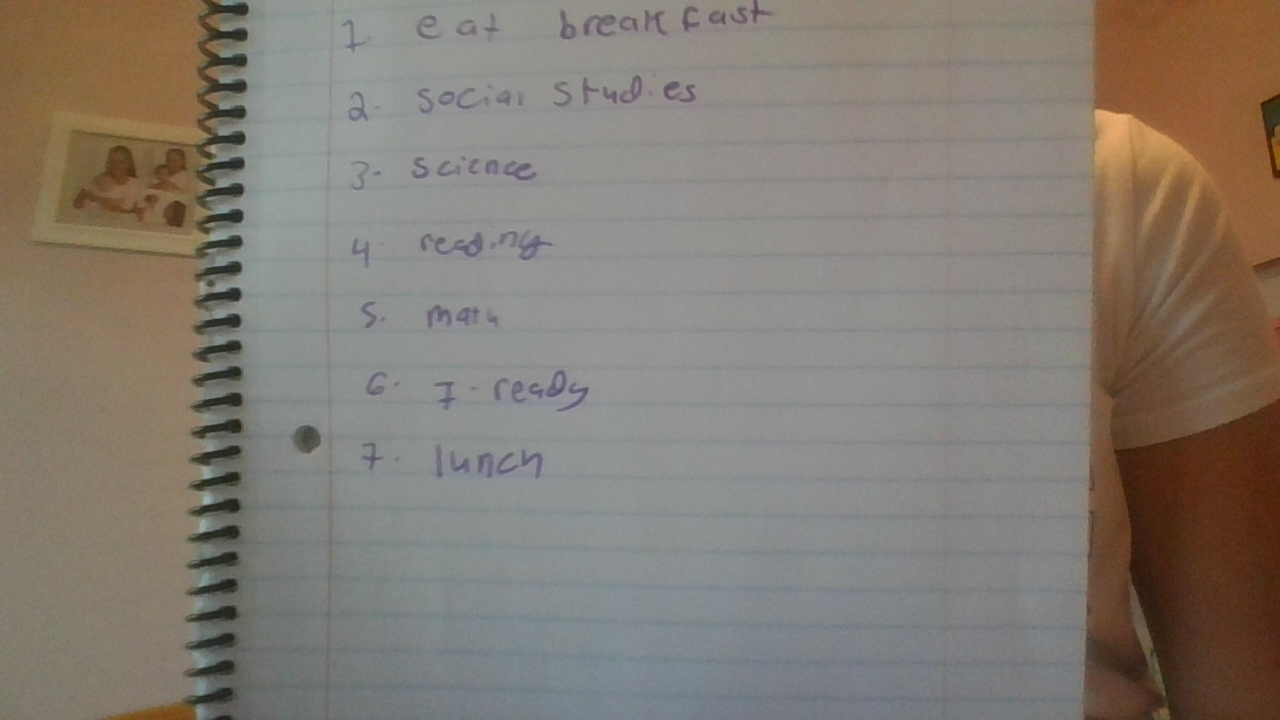 1 eat breakfast
2. social studies
3. science
4. reading
5. math
6. I-ready
7. lunch